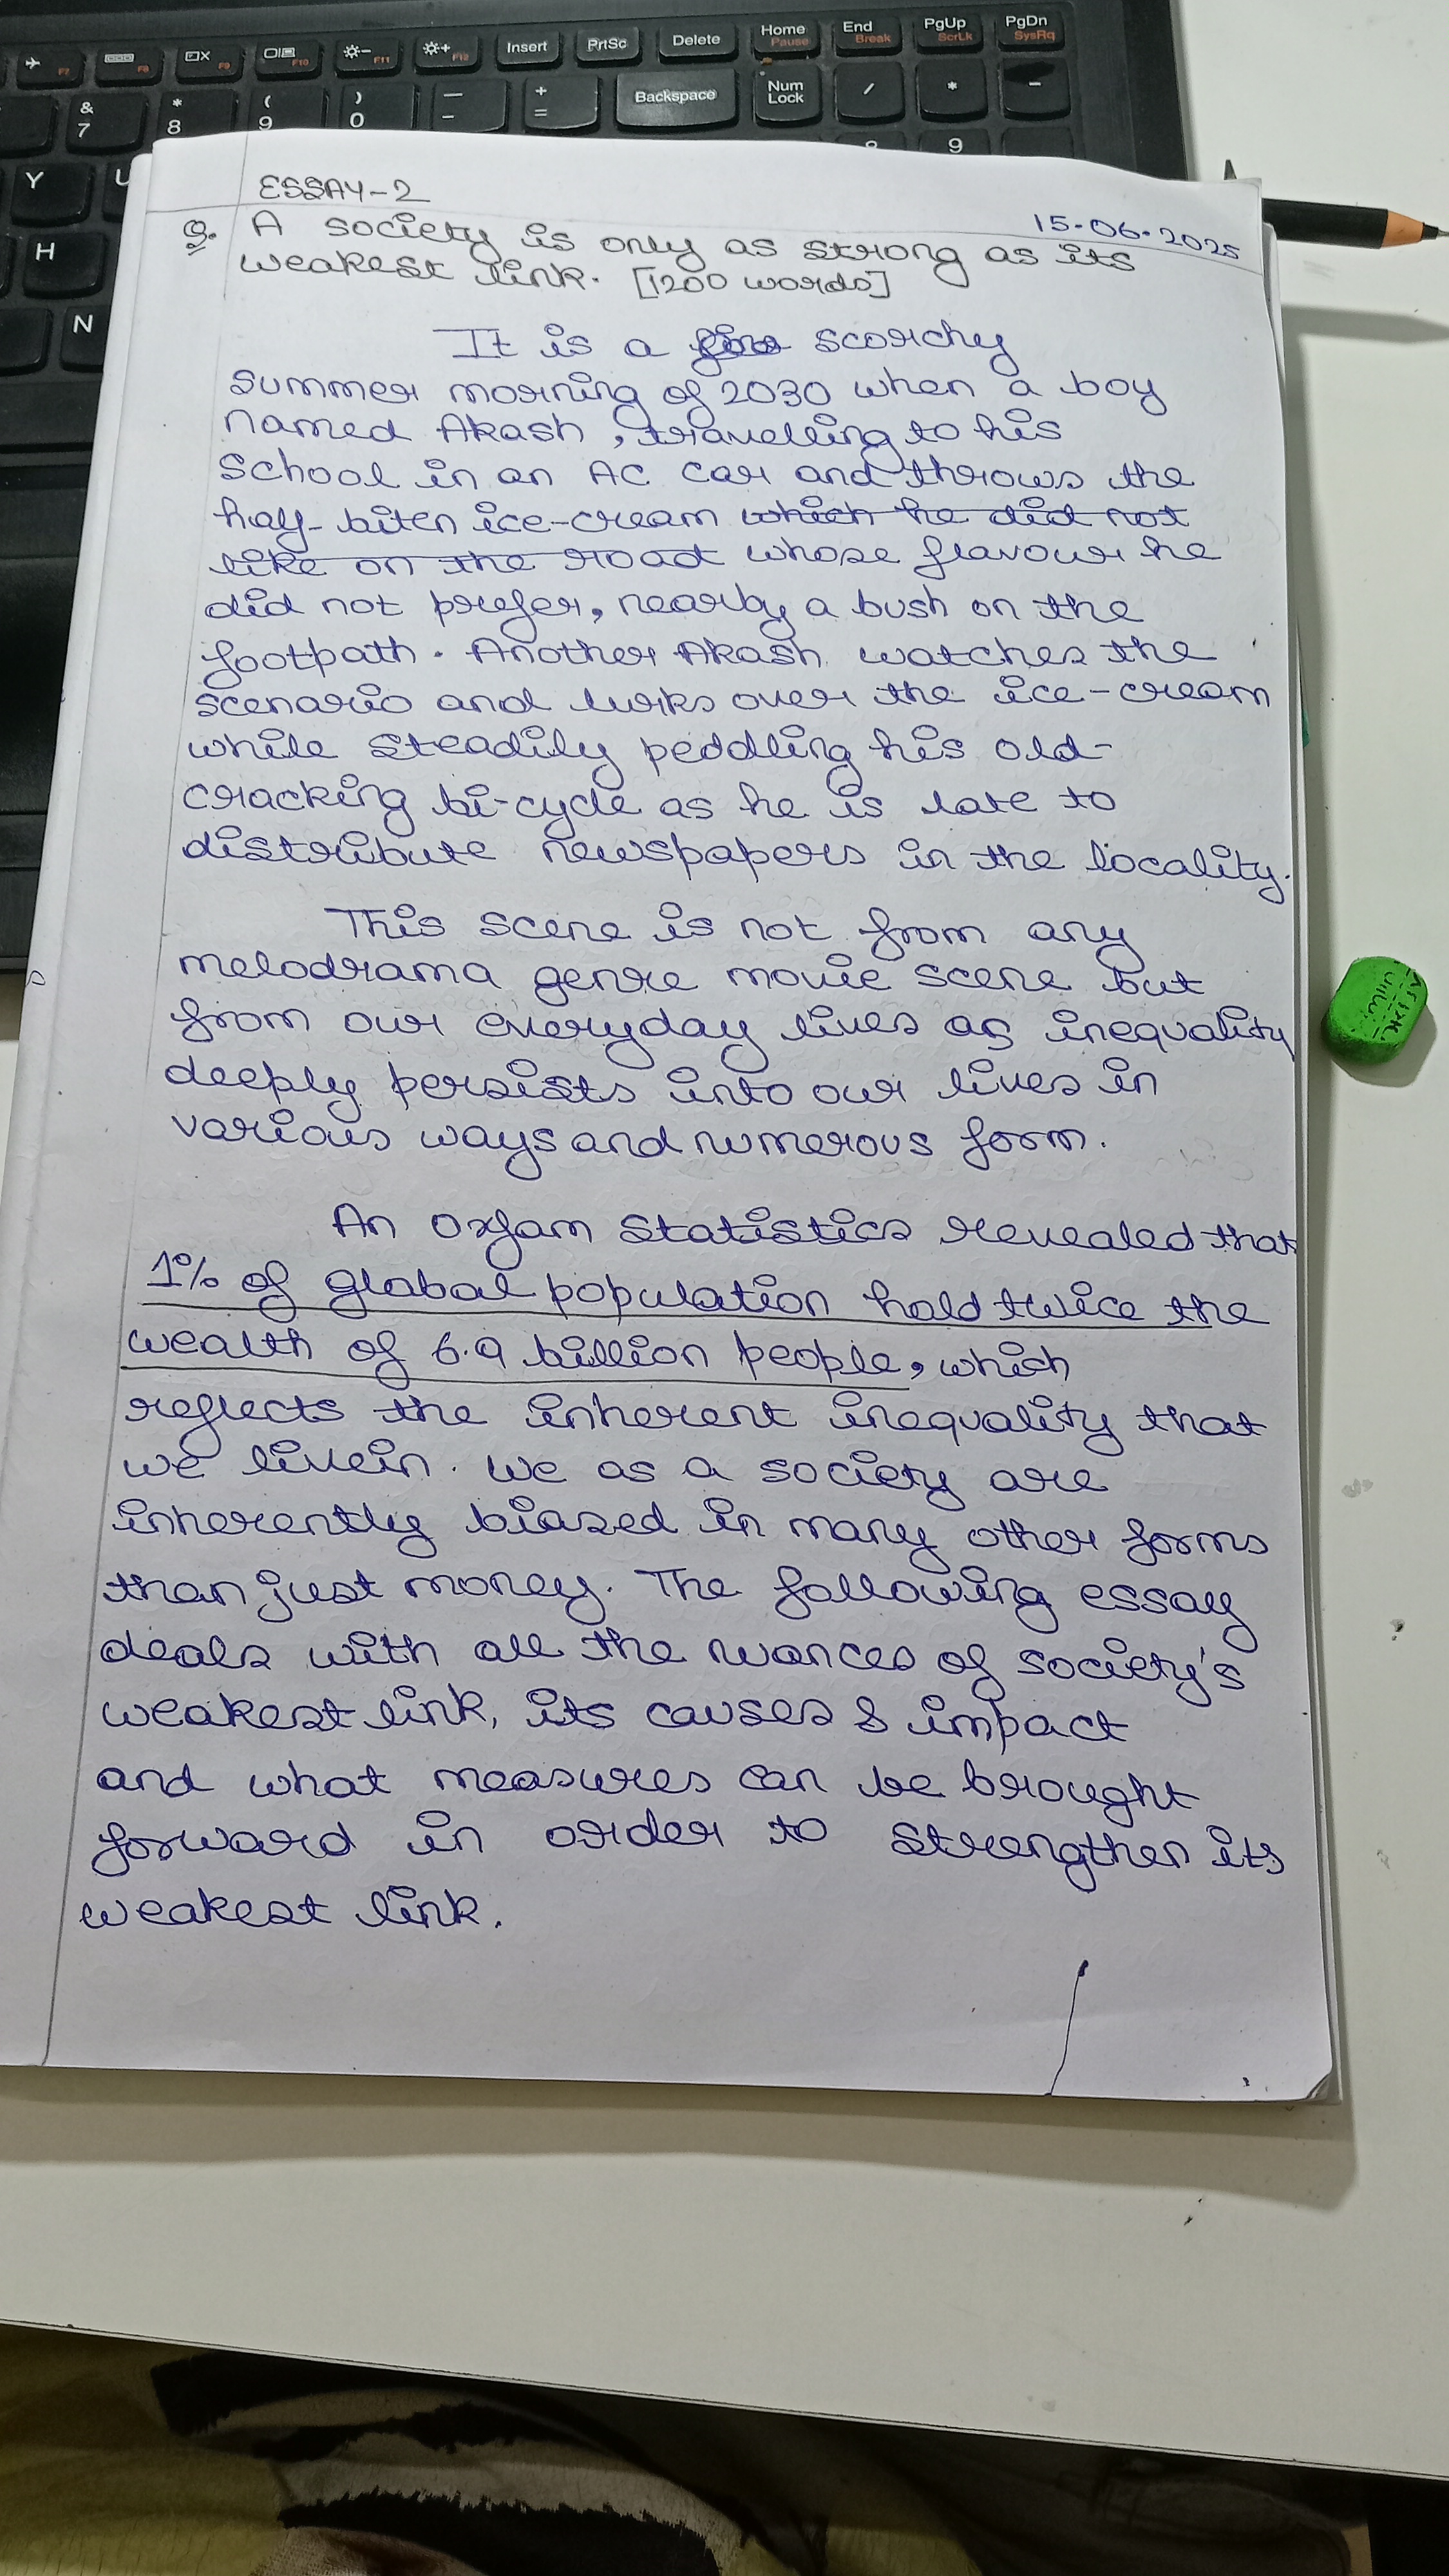 F7 F8 F9 F10 F11 F12 Insert PrtSc Delete Home Pause End Break PgUp ScrLk PgDn SysRq
& 7 * 8 ( 9 ) 0 — - + = Backspace Num Lock / * -
9
Y U
H
N
ESSAY-2
15.06.2025
Q. A society is only as strong as its
weakest link. [1200 words]
It is a scorchy
summer morning of 2030 when a boy
named Akash, travelling to his
school in an AC car and throws the
hay-biten ice-cream which he did not
like on the road whose flavour he
did not prefer, nearby a bush on the
footpath. Another Akash watches the
scenario and lurks over the ice-cream
while steadily peddling his old-
cracking bi-cycle as he is late to
distribute newspapers in the locality.
This scene is not from any
melodrama genre movie scene but
from our everyday lives as inequality
deeply persists into our lives in
various ways and numerous form.
An Oxfam statistics revealed that
1% of global population hold twice the
wealth of 6.9 billion people, which
reflects the inherent inequality that
we live in. We as a society are
inherently biased in many other forms
than just money. The following essay
deals with all the nuances of society's
weakest link, its causes & impact
and what measures can be brought
forward in order to strengthen its
weakest link.